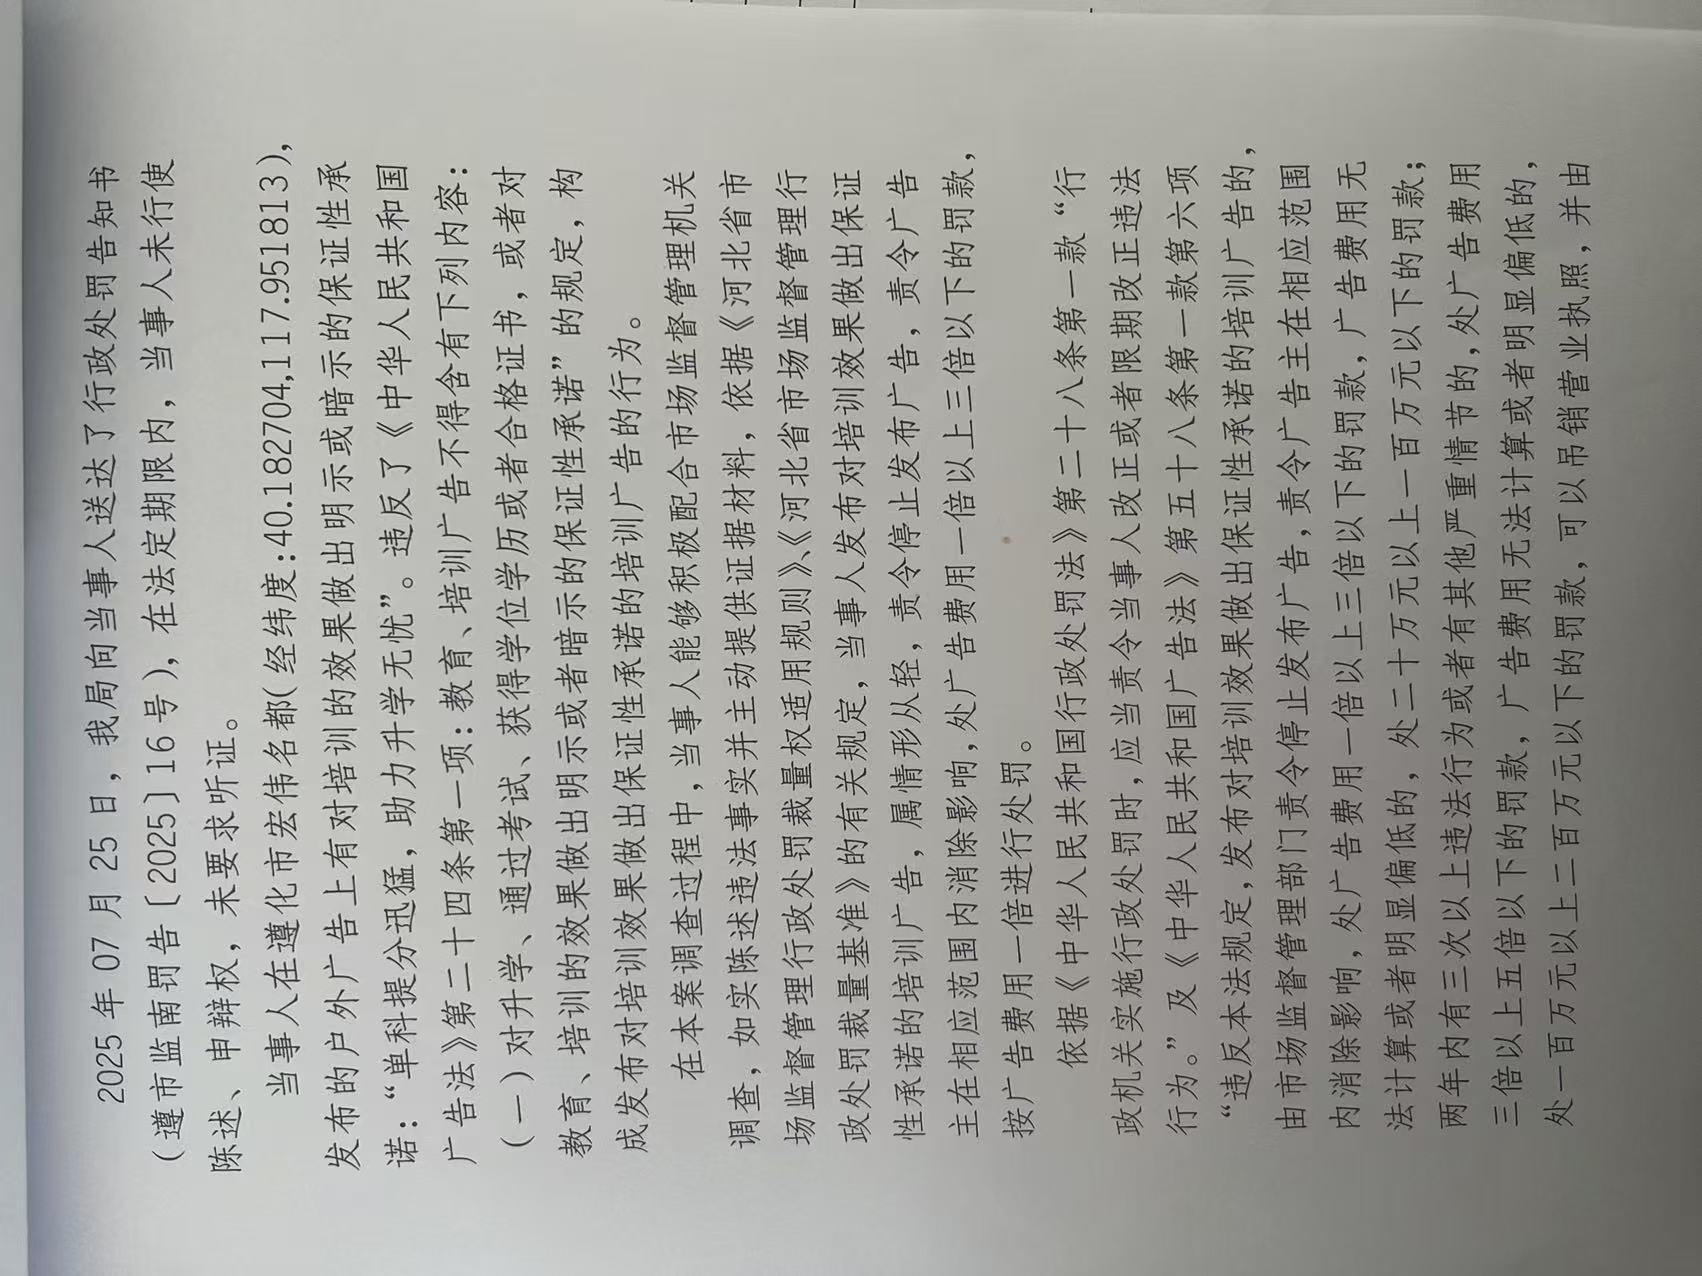 2025 年 07 月 25 日，我局向当事人送达了行政处罚告知书
（遵市监南罚告〔2025〕16 号），在法定期限内，当事人未行使
陈述、申辩权，未要求听证。
当事人在遵化市宏伟名都（经纬度：40.182704,117.951813），
发布的户外广告上有对培训的效果做出明示或暗示的保证性承
诺：“单科提分迅猛，助力升学无忧”。违反了《中华人民共和国
广告法》第二十四条第一项：教育、培训广告不得含有下列内容：
（一）对升学、通过考试、获得学位学历或者合格证书，或者对
教育、培训的效果做出明示或者暗示的保证性承诺”的规定，构
成发布对培训效果做出保证性承诺的培训广告的行为。
在本案调查过程中，当事人能够积极配合市场监督管理机关
调查，如实陈述违法事实并主动提供证据材料，依据《河北省市
场监督管理行政处罚裁量权适用规则》、《河北省市场监督管理行
政处罚裁量基准》的有关规定，当事人发布对培训效果做出保证
性承诺的培训广告，属情形从轻，责令停止发布广告，责令广告
主在相应范围内消除影响，处广告费用一倍以上三倍以下的罚款，
按广告费用一倍进行处罚。
依据《中华人民共和国行政处罚法》第二十八条第一款“行
政机关实施行政处罚时，应当责令当事人改正或者限期改正违法
行为。”及《中华人民共和国广告法》第五十八条第一款第六项
“违反本法规定，发布对培训效果做出保证性承诺的培训广告的，
由市场监督管理部门责令停止发布广告，责令广告主在相应范围
内消除影响，处广告费用一倍以上三倍以下的罚款，广告费用无
法计算或者明显偏低的，处二十万元以上一百万元以下的罚款；
两年内有三次以上违法行为或者有其他严重情节的，处广告费用
三倍以上五倍以下的罚款，广告费用无法计算或者明显偏低的，
处一百万元以上二百万元以下的罚款，可以吊销营业执照，并由